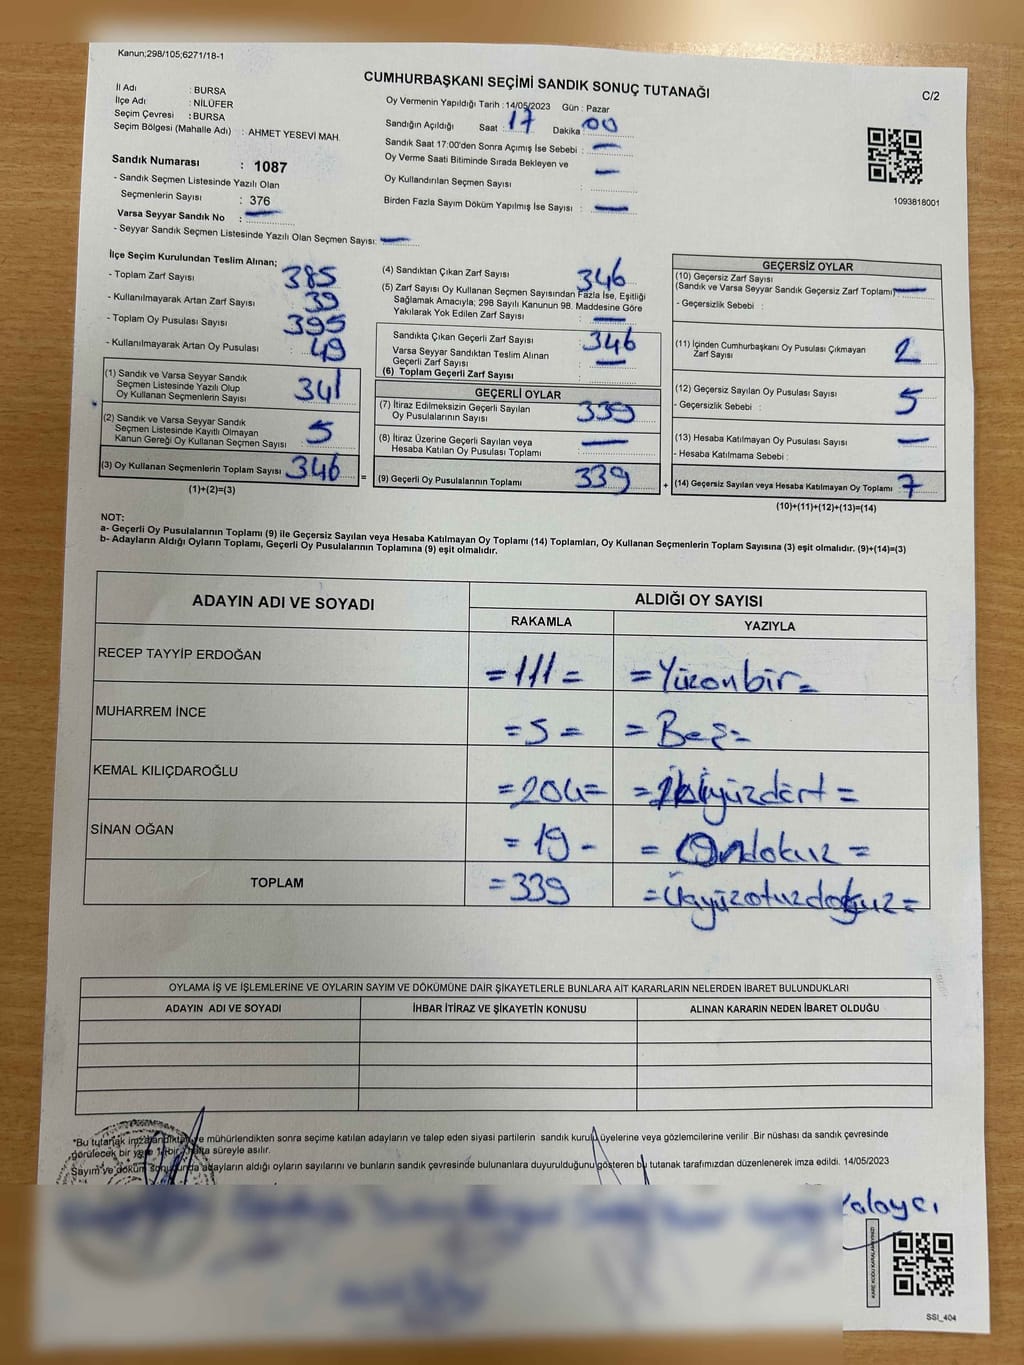 Kanun;298/105;6271/18-1
CUMHURBAŞKANI SEÇİMİ SANDIK SONUÇ TUTANAĞI
C/2
İl Adı : BURSA
İlçe Adı : NİLÜFER
Seçim Çevresi : BURSA
Seçim Bölgesi (Mahalle Adı) : AHMET YESEVİ MAH.
Sandık Numarası : 1087
- Sandık Seçmen Listesinde Yazılı Olan
Seçmenlerin Sayısı : 376
Varsa Seyyar Sandık No : —
- Seyyar Sandık Seçmen Listesinde Yazılı Olan Seçmen Sayısı: —
Oy Vermenin Yapıldığı Tarih : 14/05/2023 Gün : Pazar
Sandığın Açıldığı Saat : 17 Dakika : 00
Sandık Saat 17:00'den Sonra Açımış İse Sebebi : —
Oy Verme Saati Bitiminde Sırada Bekleyen ve —
Oy Kullandırılan Seçmen Sayısı :
Birden Fazla Sayım Döküm Yapılmış İse Sayısı : —
1093818001
İlçe Seçim Kurulundan Teslim Alınan;
- Toplam Zarf Sayısı : 385
- Kullanılmayarak Artan Zarf Sayısı : 39
- Toplam Oy Pusulası Sayısı : 395
- Kullanılmayarak Artan Oy Pusulası : 49
(1) Sandık ve Varsa Seyyar Sandık
Seçmen Listesinde Yazılı Olup
Oy Kullanan Seçmenlerin Sayısı : 341
(2) Sandık ve Varsa Seyyar Sandık
Seçmen Listesinde Kayıtlı Olmayan
Kanun Gereği Oy Kullanan Seçmen Sayısı : 5
(3) Oy Kullanan Seçmenlerin Toplam Sayısı : 346 =
(1)+(2)=(3)
(4) Sandıktan Çıkan Zarf Sayısı : 346
(5) Zarf Sayısı Oy Kullanan Seçmen Sayısından Fazla İse, Eşitliği
Sağlamak Amacıyla; 298 Sayılı Kanunun 98. Maddesine Göre
Yakılarak Yok Edilen Zarf Sayısı : —
Sandıkta Çıkan Geçerli Zarf Sayısı : 346
Varsa Seyyar Sandıktan Teslim Alınan
Geçerli Zarf Sayısı : —
(6) Toplam Geçerli Zarf Sayısı :
GEÇERLİ OYLAR
(7) İtiraz Edilmeksizin Geçerli Sayılan
Oy Pusulalarının Sayısı : 339
(8) İtiraz Üzerine Geçerli Sayılan veya
Hesaba Katılan Oy Pusulası Toplamı : —
(9) Geçerli Oy Pusulalarının Toplamı : 339 +
GEÇERSİZ OYLAR
(10) Geçersiz Zarf Sayısı
(Sandık ve Varsa Seyyar Sandık Geçersiz Zarf Toplamı) —
- Geçersizlik Sebebi :
(11) İçinden Cumhurbaşkanı Oy Pusulası Çıkmayan
Zarf Sayısı : 2
(12) Geçersiz Sayılan Oy Pusulası Sayısı : 5
- Geçersizlik Sebebi :
(13) Hesaba Katılmayan Oy Pusulası Sayısı : —
- Hesaba Katılmama Sebebi :
(14) Geçersiz Sayılan veya Hesaba Katılmayan Oy Toplamı : 7
(10)+(11)+(12)+(13)=(14)
NOT:
a- Geçerli Oy Pusulalarının Toplamı (9) ile Geçersiz Sayılan veya Hesaba Katılmayan Oy Toplamı (14) Toplamları, Oy Kullanan Seçmenlerin Toplam Sayısına (3) eşit olmalıdır. (9)+(14)=(3)
b- Adayların Aldığı Oyların Toplamı, Geçerli Oy Pusulalarının Toplamına (9) eşit olmalıdır.
ADAYIN ADI VE SOYADI ALDIĞI OY SAYISI
RAKAMLA YAZIYLA
RECEP TAYYİP ERDOĞAN =111= =Yüzonbir=
MUHARREM İNCE =5= =Beş=
KEMAL KILIÇDAROĞLU =204= =İkiyüzdört=
SİNAN OĞAN =19- =Ondokuz=
TOPLAM =339 =Üçyüzotuzdokuz=
OYLAMA İŞ VE İŞLEMLERİNE VE OYLARIN SAYIM VE DÖKÜMÜNE DAİR ŞİKAYETLERLE BUNLARA AİT KARARLARIN NELERDEN İBARET BULUNDUKLARI
ADAYIN ADI VE SOYADI İHBAR İTİRAZ VE ŞİKAYETİN KONUSU ALINAN KARARIN NEDEN İBARET OLDUĞU
*Bu tutanak imzalandıktan ve mühürlendikten sonra seçime katılan adayların ve talep eden siyasi partilerin sandık kurulu üyelerine veya gözlemcilerine verilir .Bir nüshası da sandık çevresinde
görülecek bir yere 1 (bir) hafta süreyle asılır.
Sayım ve döküm sonucunda adayların aldığı oyların sayılarını ve bunların sandık çevresinde bulunanlara duyurulduğunu gösteren bu tutanak tarafımızdan düzenlenerek imza edildi. 14/05/2023
SSI_404